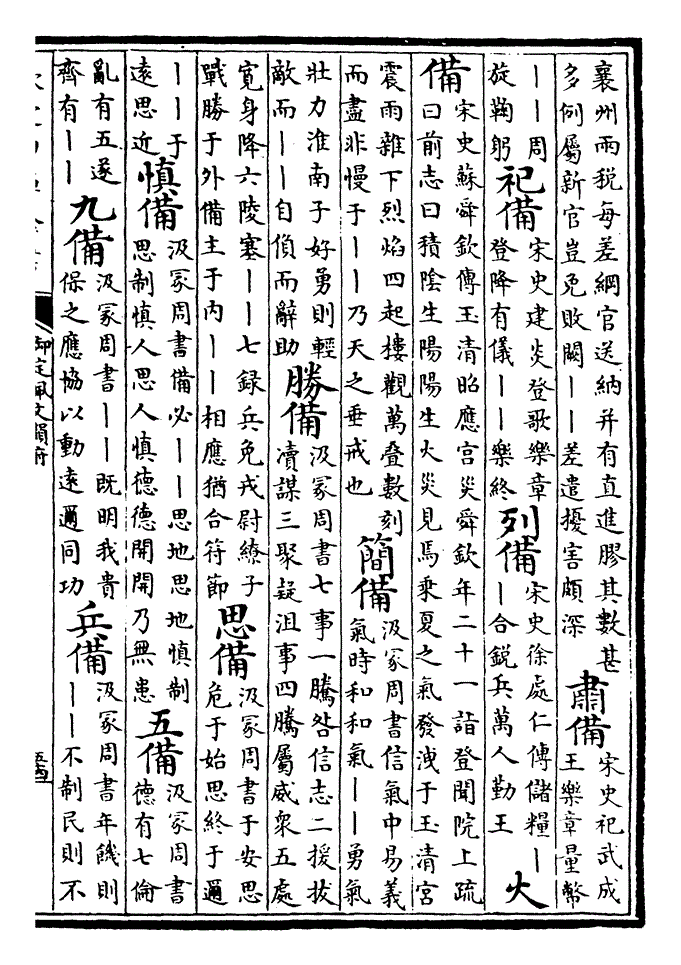 襄州兩稅每差綱官送納并有直進膠其數甚
多例屬新官豈免敗闕——差遣擾害頗深
肅備
宋史祀武成
王樂章量幣
——周
旋鞠躬
祀備
宋史建炎登歌樂章
登降有儀——樂終
列備
宋史徐處仁傳儲糧—
—合銳兵萬人勤王
火
備
宋史蘇舜欽傳玉清昭應宮災舜欽年二十一詣登聞院上疏
曰前志曰積陰生陽陽生火災見焉乘夏之氣發洩于玉清宮
震雨雜下烈焰四起樓觀萬疊數刻
而盡非慢于——乃天之垂戒也
簡備
汲冢周書信氣中易義
氣時和和氣——勇氣
壯力淮南子好勇則輕
敵而——自負而辭助
勝備
汲冢周書七事一騰咎信志二援拔
瀆謀三聚疑沮事四騰屬威衆五處
寛身降六陵塞——七録兵免戎尉繚子
戰勝于外備主于内——相應猶合符節
思備
汲冢周書于安思
危于始思終于邇
——于
遠思近
慎備
汲冢周書備必——思地思地慎制
思制慎人思人慎德德開開乃無患
五備
汲冢周書
德有七倫
亂有五遂
齊有——
九備
汲冢周書——既明我貴
保之應協以動遠邇同功
兵備
汲冢周書年饑則
——不制民則不
御定佩文韻府